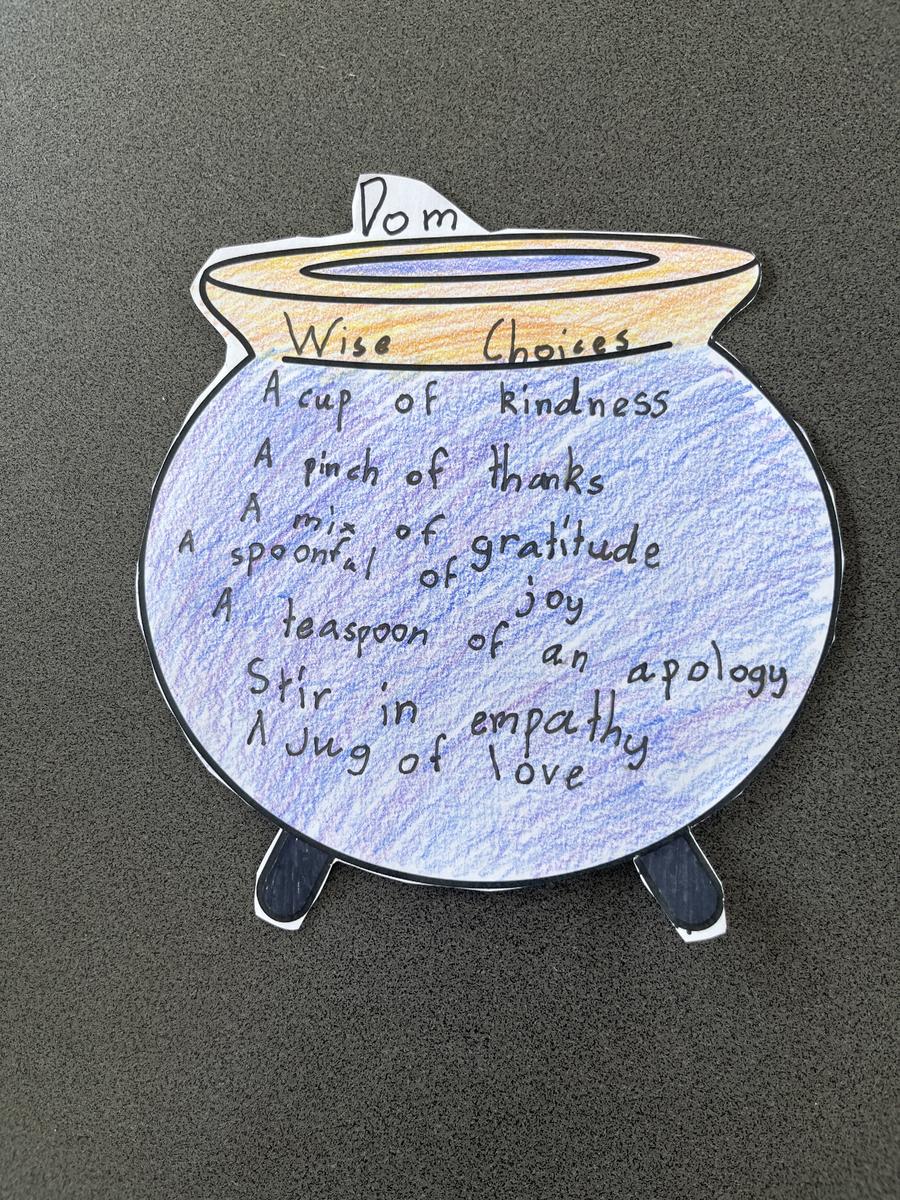 Dom
Wise Choices
A cup of kindness
A pinch of thanks
A mix of gratitude
A spoonful of joy
A teaspoon of an apology
Stir in empathy
A Jug of love